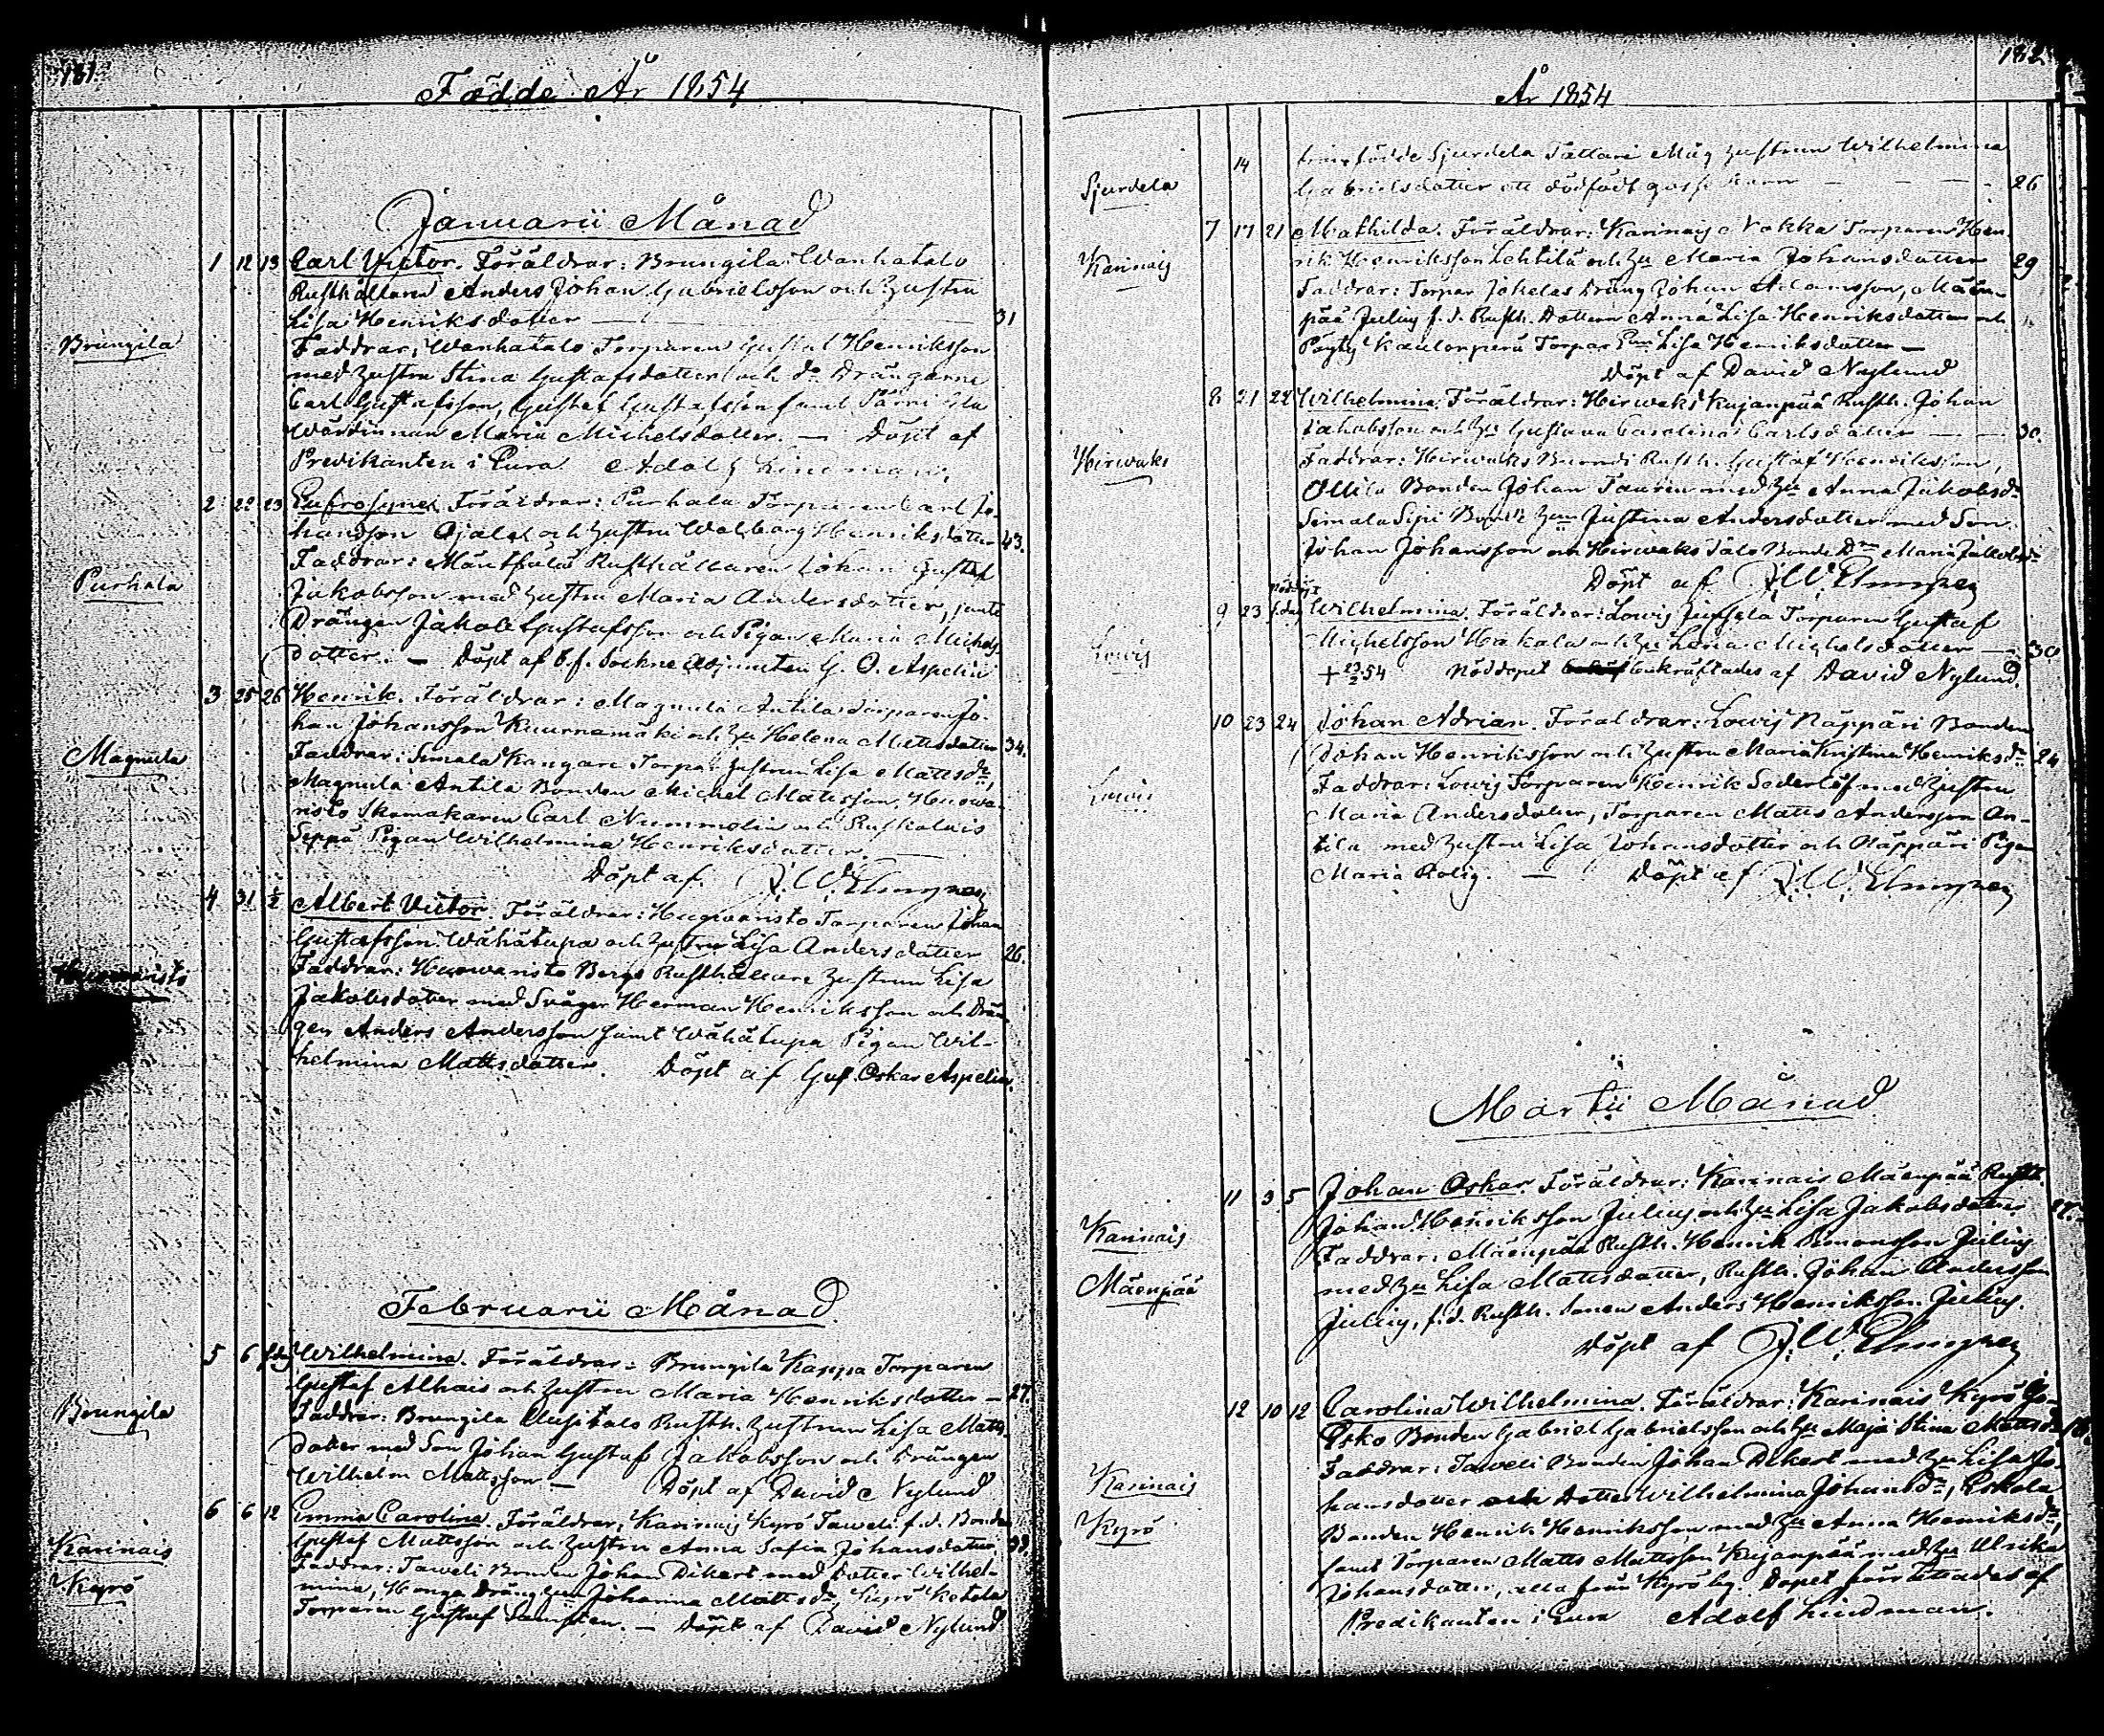 181.
Födde År 1854
Januarii Månad
Brungila
1 12 13 Carl Victor. Föräldrar: Brungila Wanhatalo
Rusthållaren Anders Johan Gabrielsson och Hustru
Lisa Henriksdotter — 31
Faddrar: Wanhatalo Torparen Gustaf Henriksson
med hustru Stina Gustafsdotter och d:o Drängarne
Carl Gustafsson, Gustaf Gustafsson samt
Wärdinnan Maria Michelsdotter. — Döpt af
Predikanten i Eura Adolf Lindman.
Purhala
2 22 23 Eufrosyne. Föräldrar: Purhala Torparen Carl Jo-
hansson Ojala och hustru Walborg Henriksdotter 43.
Faddrar: Rusthållaren Johan Gustaf
Jakobsson med hustru Maria Andersdotter, jemte
Drängen Jakob Gustafsson och Pigan Maria Michels-
dotter. — Döpt af Sockne Adjuncten G. O. Aspelin
Magnula
3 25 26 Henrik. Föräldrar: Magnula Antila Torparen Jo-
han Johansson Kuurnamäki och Hu Helena Mattsdotter 34.
Faddrar: Simala Kangare Torpar hustrun Lisa Mattsd:r,
Magnula Antila Bonden Michel Mattsson, Huowa-
risto Skomakaren Carl Nummelin och
Seppä Pigan Wilhelmina Henriksdotter.
Döpt af
Huowaristo
4 31 1/2 Albert Victor. Föräldrar: Huowaristo Torparen Johan
Gustafsson Wähätupa och hustru Lisa Andersdotter 26.
Faddrar: Huowaristo Bergs Rusthållare hustrun Lisa
Jakobsdotter med Svåger Herman Henriksson och Drän-
gen Anders Andersson samt Wähätupa Pigan Wil-
helmina Mattsdotter. Döpt af Gust. Oskar Aspelin.
Februarii Månad.
Brungila
5 6 Wilhelmina. Föräldrar: Brungila Kappa Torparen
Gustaf Alhais och hustru Maria Henriksdotter — 27.
Faddrar: Brungila Uusitalo Rusth. hustrun Lisa Matts-
dotter med Son Johan Gustaf Jakobsson och Drängen
Wilhelm Mattsson — Döpt af David Nylund
Karinais
Kyrö
6 6 12 Emma Carolina. Föräldrar: Karinais Kyrö Taweli f.d. Bonden
Gustaf Mattsson och hustru Anna Sofia Johansdotter 39.
Faddrar: Taweli Bonden Johan Dikert med Dotter Wilhel-
mina, Honga Dräng hun Johanna Mattsd:r, Kyrö Ketola
Torparen Gustaf — Döpt af David Nylund
182.
År 1854
Sjurdela
14 Sjurdela Tattari Måg hustrun Wilhelmina
Gabrielsdotter ett dödfödt gosse barn — 26
Karinais
7 17 21 Mathilda. Föräldrar: Karinais Nokka Torparen Hen-
rik Henriksson Lehtilä och Hu Maria Johansdotter 29
Faddrar: Torpar Jokelas Dräng Johan Adamsson, Mäen-
pää Julius f.d. Rusth. Dottern Anna Lisa Henriksdotter och
Torpar Lisa Henriksdotter —
Döpt af David Nylund
Hirwaks
8 21 22 Wilhelmina. Föräldrar: Hirwaks Kujanpää Rusth. Johan
Jakobsson och Hu Gustava Carolina Carlsdotter — 30.
Faddrar: Hirwaks Rusth. Gustaf Henriksson,
Ollila Bonden Johan Tauren med Hu Anna Jakobsd:r
Simala Sipi Bonde Hun Justina Andersdotter med Son
Johan Johansson och Hirwaks Talo Bonde Maria Jakobsd:r
Döpt af
Lowis
9 23 Wilhelmina. Föräldrar: Lowis Torparen Gustaf
Michelsson Hakala och Hu Lena Michelsdotter — 30
+ 23/2 54 Nöddopet bekräftades af David Nylund.
Lowis
10 23 24 Johan Adrian. Föräldrar: Lowis Näppäri Bonden
Johan Henriksson och hustru Maria Kristina Henriksd:r 24
Faddrar: Lowis Torparen Henrik Söderlöf med hustru
Maria Andersdotter, Torparen Matts Andersson An-
tila med hustru Lisa Johansdotter och Näppäri Pigan
Maria Rolig. — Döpt af
Martii Månad
Karinais
Mäenpää
11 3 5 Johan Oskar. Föräldrar: Karinais Mäenpää Rusth.
Johan Henriksson Julius och Hu Lisa Jakobsdotter
Faddrar: Mäenpää Rusth. Henrik Simonsson Julius
med Hu Lisa Mattsdotter, Rusth. Johan Andersson
Julius, f.d. Rusth. Sonen Anders Henriksson Julius.
Döpt af
Karinais
Kyrö
12 10 12 Carolina Wilhelmina. Föräldrar: Karinais Kyrö
Esko Bonden Gabriel Gabrielsson och Hu Maja Stina Mattsd:r
Faddrar: Taweli Bonden Johan Dikert med Hu Lisa Jo-
hansdotter och Dotter Wilhelmina Johansd:r, Eskola
Bonden Henrik Henriksson med Hu Anna Henriksd:r,
samt Torparen Matts Mattsson Kujanpää med Hu Ulrika
Johansdotter, alla från Kyrö by. Dopet förrättades af
Predikanten i Eura Adolf Lindman.